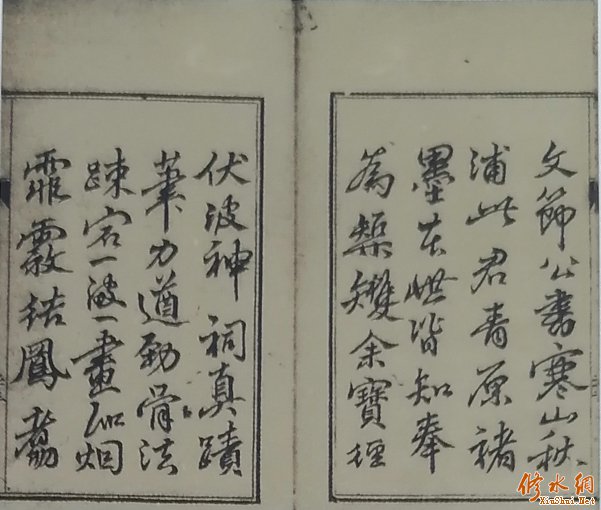 文節公書寒山秋
浦此君青原褚
墨本世皆知奉
為榘矱余寶
伏波神祠真蹟
筆力遒勁骨法
疎宕一波一畫烟
霏霧結鳳翥
修水網
XiuShui.Net